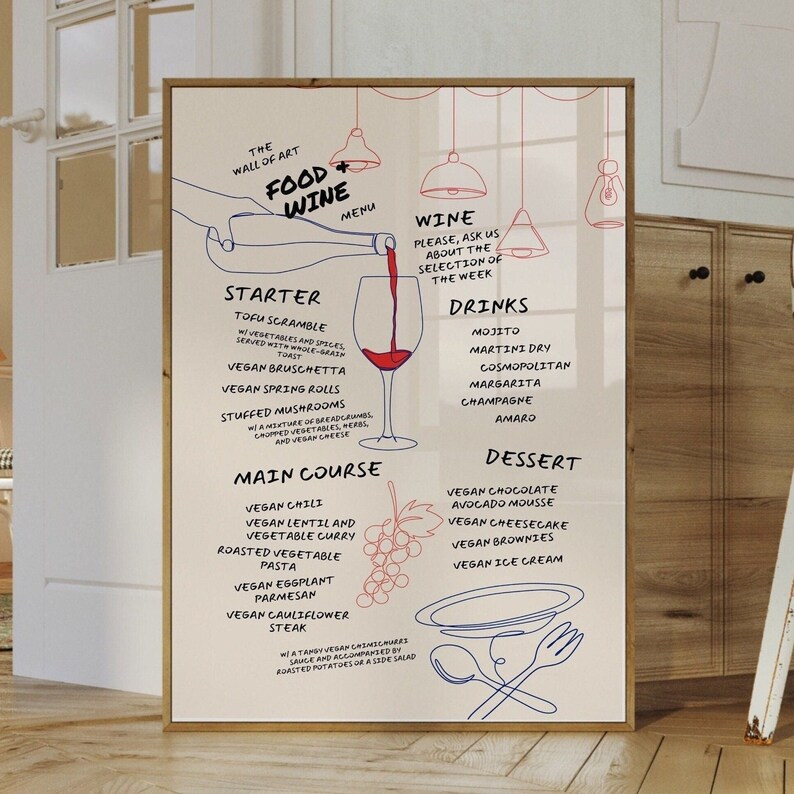 THE
WALL OF ART
FOOD +
WINE
MENU
WINE
PLEASE, ASK US
ABOUT THE
SELECTION OF
THE WEEK
STARTER
TOFU SCRAMBLE
W/ VEGETABLES AND SPICES,
SERVED WITH WHOLE-GRAIN
TOAST
VEGAN BRUSCHETTA
VEGAN SPRING ROLLS
STUFFED MUSHROOMS
W/ A MIXTURE OF BREADCRUMBS,
CHOPPED VEGETABLES, HERBS,
AND VEGAN CHEESE
DRINKS
MOJITO
MARTINI DRY
COSMOPOLITAN
MARGARITA
CHAMPAGNE
AMARO
MAIN COURSE
VEGAN CHILI
VEGAN LENTIL AND
VEGETABLE CURRY
ROASTED VEGETABLE
PASTA
VEGAN EGGPLANT
PARMESAN
VEGAN CAULIFLOWER
STEAK
W/ A TANGY VEGAN CHIMICHURRI
SAUCE AND ACCOMPANIED BY
ROASTED POTATOES OR A SIDE SALAD
DESSERT
VEGAN CHOCOLATE
AVOCADO MOUSSE
VEGAN CHEESECAKE
VEGAN BROWNIES
VEGAN ICE CREAM